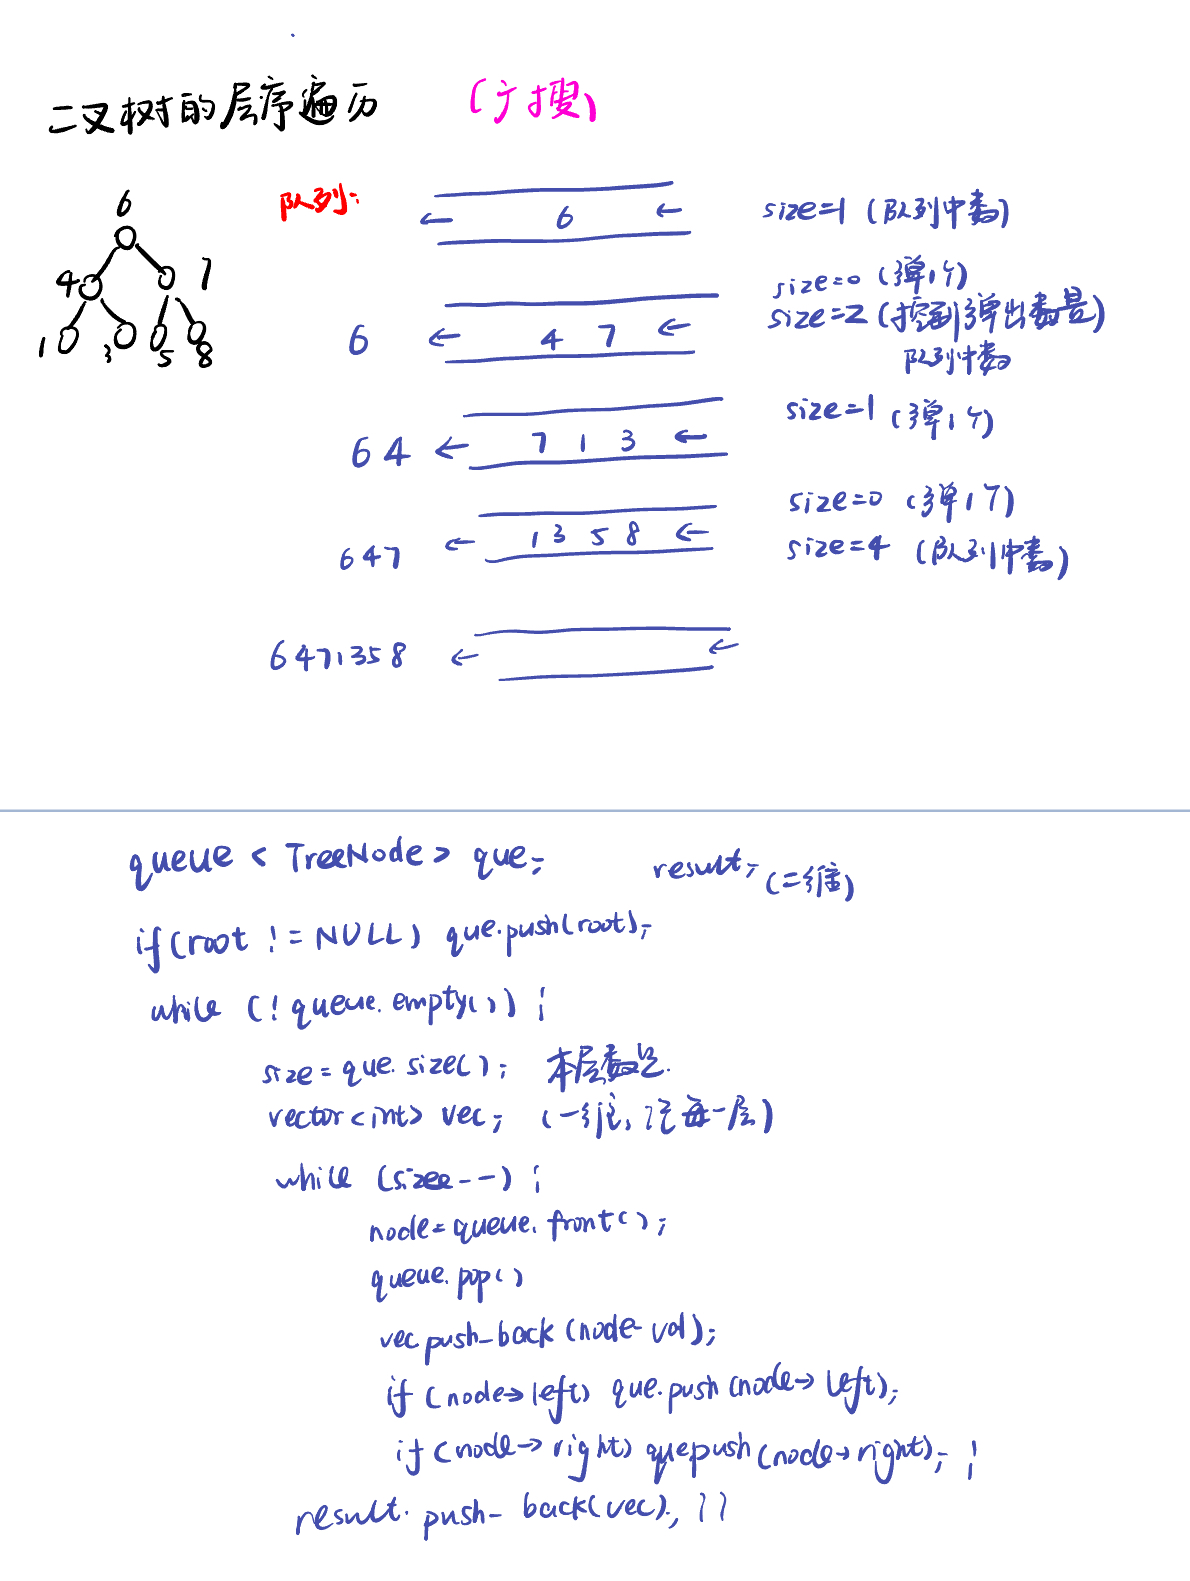 二叉树的层序遍历 (广搜)
6
4 7
1 3 5 8
队列:
← 6 ← size=1 (队列中数)
size=0 (弹1个)
6 ← 4 7 ← size=2 (控制弹出数是
队列中数)
64 ← 7 1 3 ← size=1 (弹1个)
size=0 (弹1个)
647 ← 1 3 5 8 ← size=4 (队列中数)
6471358 ← ←
queue < TreeNode > que; result; (二维)
if (root != NULL) que.push(root);
while (! queue.empty()) {
size = que.size(); 本层数量.
vector<int> vec; (一维, 记每一层)
while (size--) {
node = queue.front();
queue.pop()
vec push_back (node val);
if (node→left) que.push (node→left);
if (node→right) que.push (node→right); }
result. push_ back(vec); }}